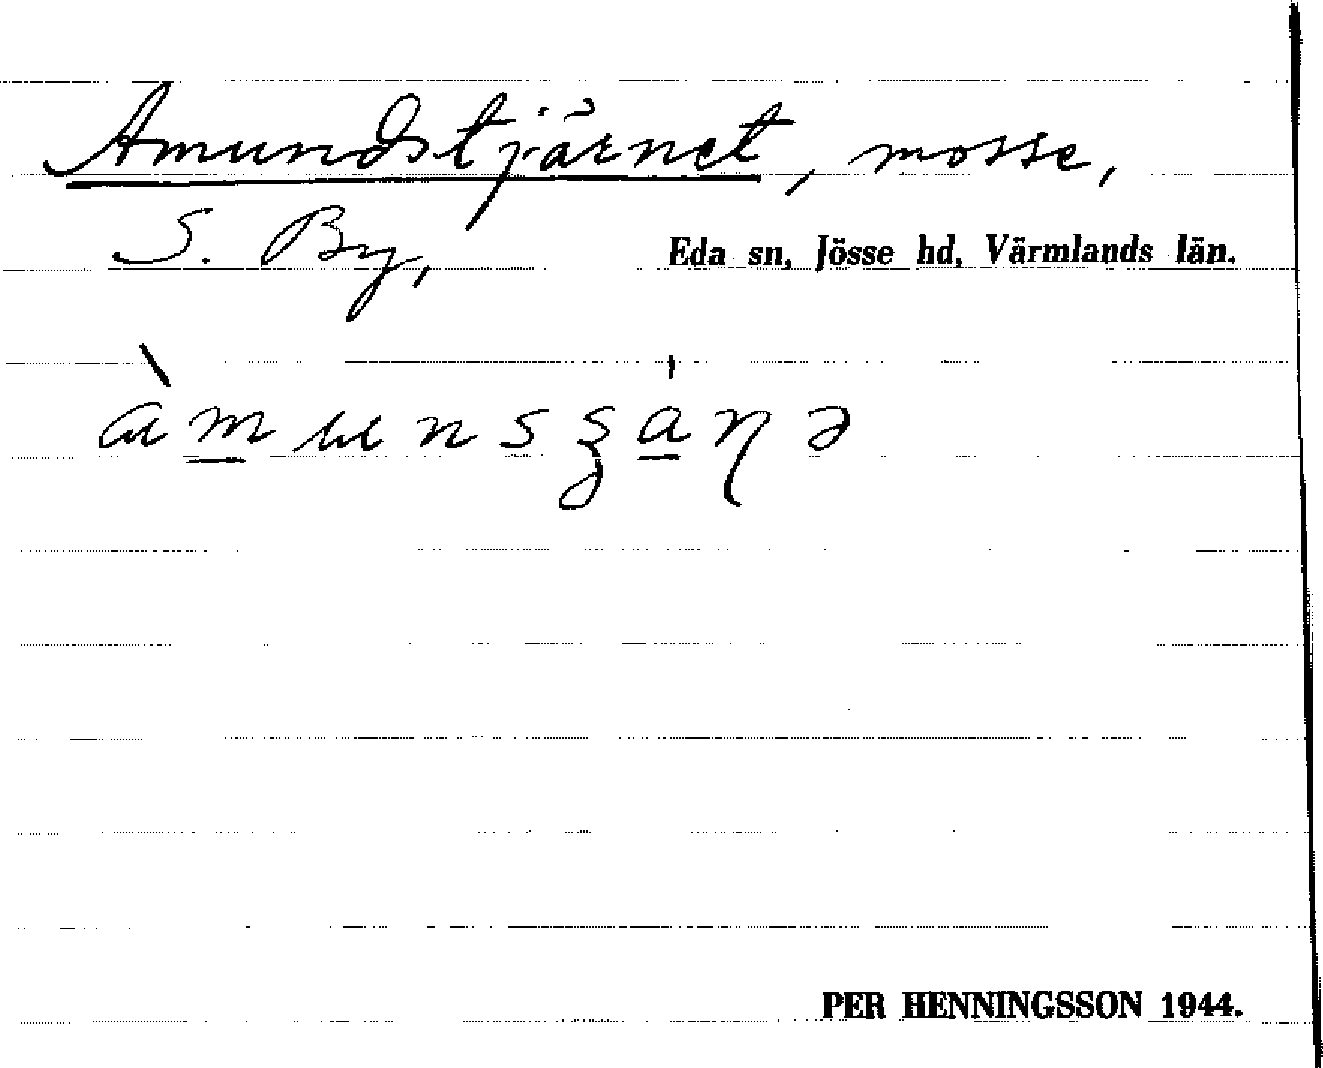 Amundstjärnet, mosse,
S. By,
Eda sn, Jösse hd, Värmlands län.
PER HENNINGSSON 1944.